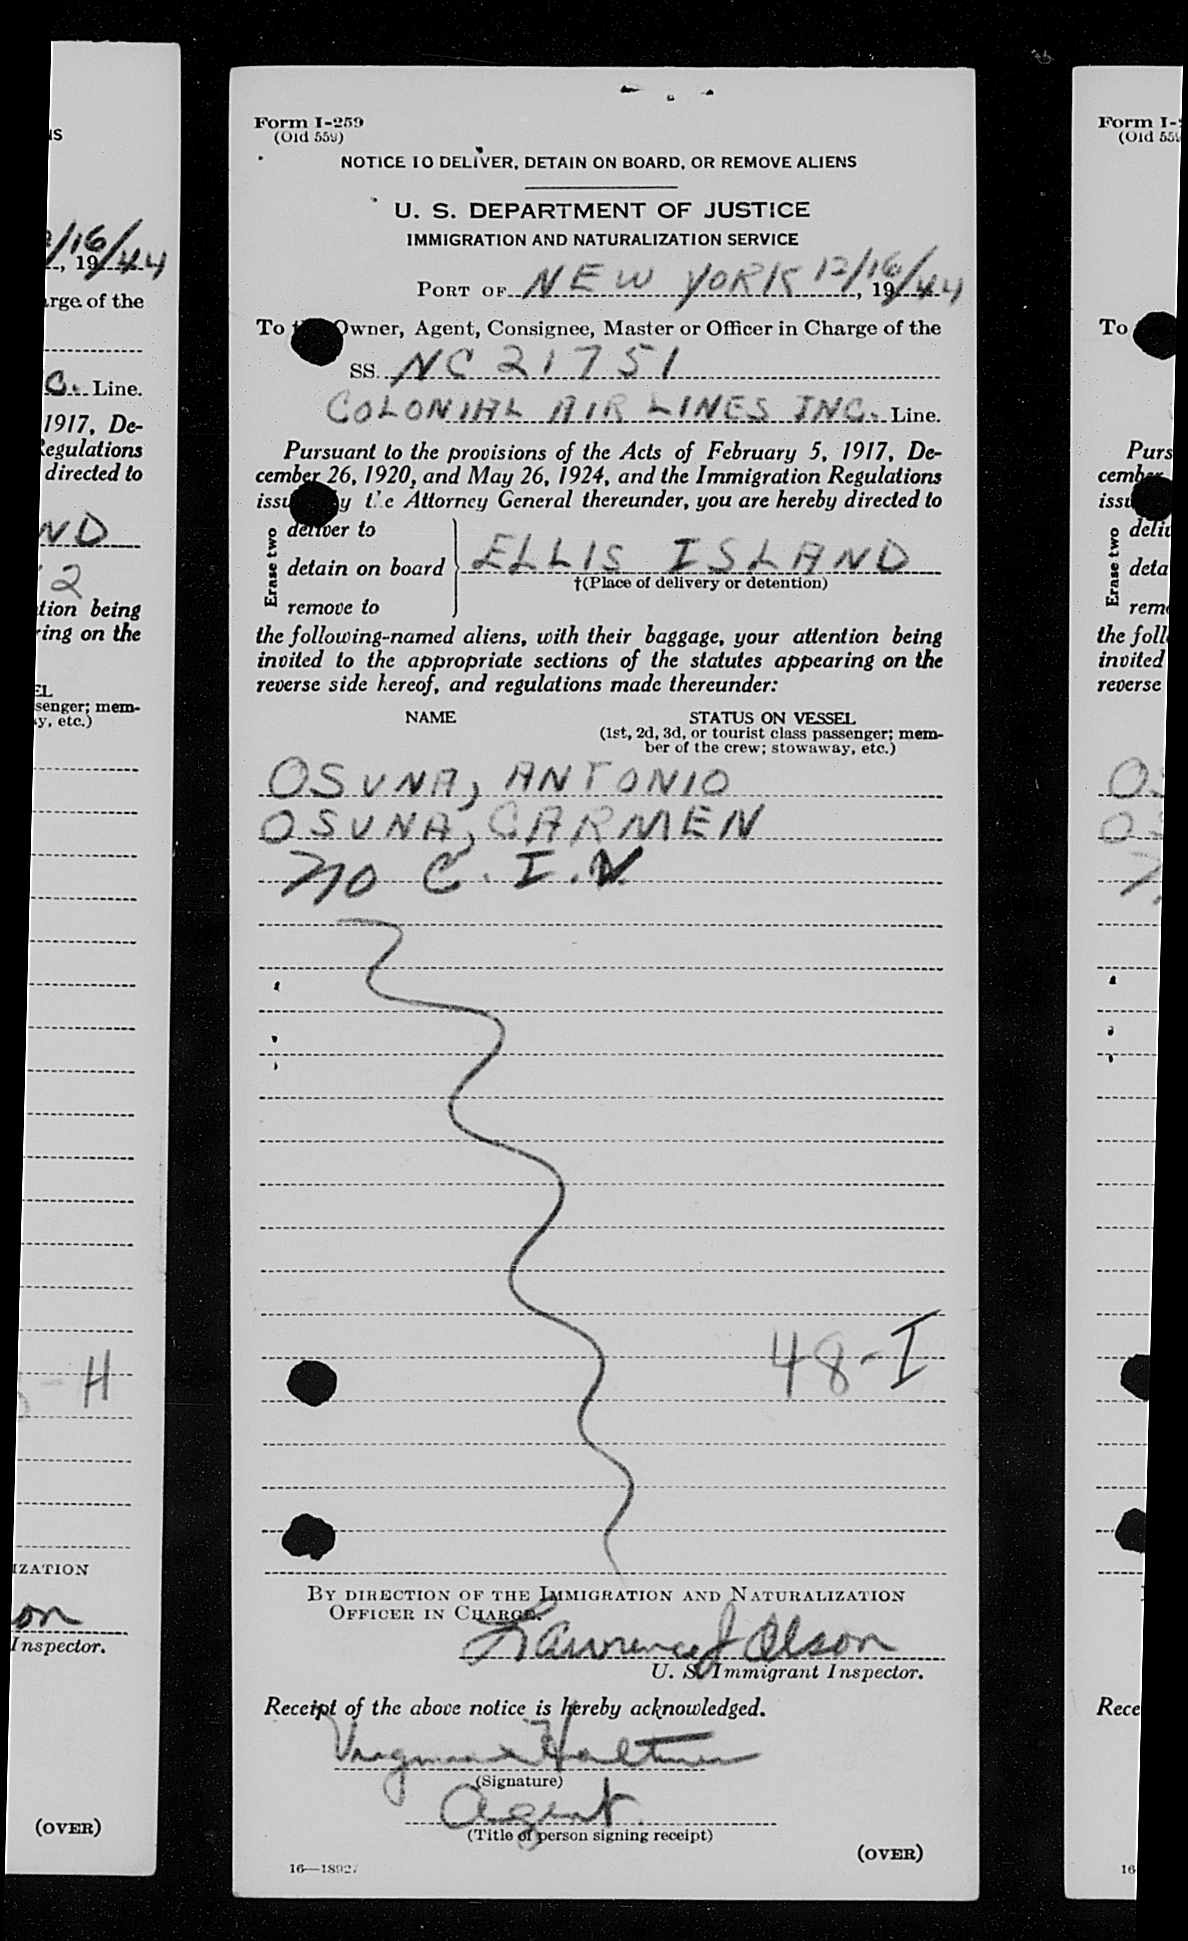 Form I-259
(Old 559)
NOTICE TO DELIVER, DETAIN ON BOARD, OR REMOVE ALIENS
U. S. DEPARTMENT OF JUSTICE
IMMIGRATION AND NATURALIZATION SERVICE
PORT OF NEW YORK 12/16/44, 19
To Owner, Agent, Consignee, Master or Officer in Charge of the
SS. NC 21751
COLONIAL AIR LINES INC. Line.
Pursuant to the provisions of the Acts of February 5, 1917, De-
cember 26, 1920, and May 26, 1924, and the Immigration Regulations
issued by the Attorney General thereunder, you are hereby directed to
Erase two
deliver to
detain on board
remove to
ELLIS ISLAND
†(Place of delivery or detention)
the following-named aliens, with their baggage, your attention being
invited to the appropriate sections of the statutes appearing on the
reverse side hereof, and regulations made thereunder:
NAME
STATUS ON VESSEL
(1st, 2d, 3d, or tourist class passenger; mem-
ber of the crew; stowaway, etc.)
OSUNA, ANTONIO
OSUNA, CARMEN
no C. I. V.
48-I
BY DIRECTION OF THE IMMIGRATION AND NATURALIZATION
OFFICER IN CHARGE.
Lawrence J Olson
U. S. Immigrant Inspector.
Receipt of the above notice is hereby acknowledged.
(Signature)
Agent.
(Title of person signing receipt)
(OVER)
16—18927
/16/44
, 19
rge of the
C. Line.
1917, De-
Regulations
directed to
ND
2
tion being
ring on the
EL
senger; mem-
y, etc.)
- H
IZATION
on
Inspector.
(OVER)
Form I-
(Old 559
To
Purs
cember
issu
Erase two
deliv
deta
remo
the foll
invited
reverse
OS
OS
Rece
16